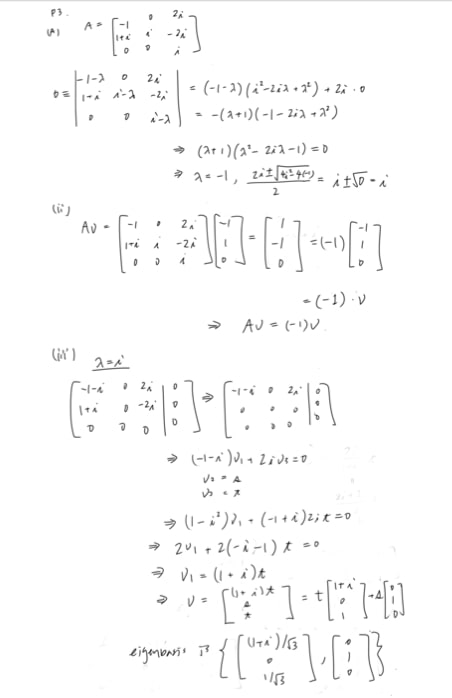 P3.
(A) A = [ -1 0 2i ; 1+i i -2i ; 0 0 i ]
0 = | -1-λ 0 2i ; 1+i i-λ -2i ; 0 0 i-λ | = (-1-λ)(i²-2iλ+λ²) + 2i · 0
= -(λ+1)(-1-2iλ+λ²)
⇒ (λ+1)(λ²-2iλ-1) = 0
⇒ λ = -1, (2i ± √(4i²-4(-1)))/2 = i ± √0 = i
(ii)
Av = [ -1 0 2i ; 1+i i -2i ; 0 0 i ] [ -1 ; 1 ; 0 ] = [ 1 ; -1 ; 0 ] = (-1) [ -1 ; 1 ; 0 ]
= (-1) · v
⇒ Av = (-1)v
(iii) λ = i
[ -1-i 0 2i | 0 ; 1+i 0 -2i | 0 ; 0 0 0 | 0 ] ⇒ [ -1-i 0 2i | 0 ; 0 0 0 | 0 ; 0 0 0 | 0 ]
⇒ (-1-i)v₁ + 2i v₃ = 0
v₂ = s
v₃ = t
⇒ (1-i²)v₁ + (-1+i)2it = 0
⇒ 2v₁ + 2(-i-1)t = 0
⇒ v₁ = (1+i)t
⇒ v = [ (1+i)t ; s ; t ] = t [ 1+i ; 0 ; 1 ] + s [ 0 ; 1 ; 0 ]
eigenbasis is { [ (1+i)/√3 ; 0 ; 1/√3 ], [ 0 ; 1 ; 0 ] }